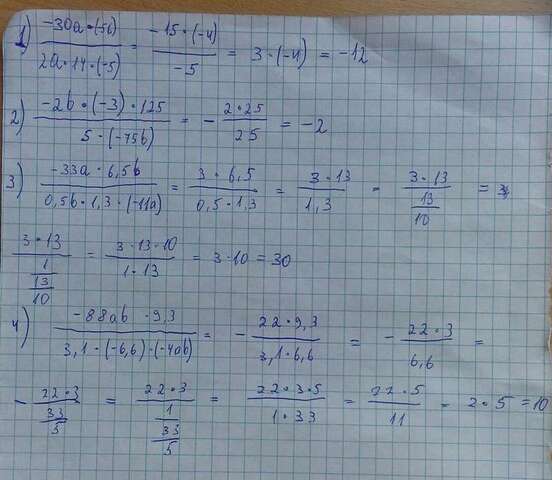 1) −30a·(−56) / 2a·14·(−5) = −15·(−4) / −5 = 3·(−4) = −12
2) −2b·(−3)·125 / 5·(−75b) = − 2·25 / 25 = −2
3) −33a·6,5b / 0,5b·1,3·(−11a) = 3·6,5 / 0,5·1,3 = 3·13 / 1,3 = 3·13 / 13/10 =
3·13 / 1 / 13/10 = 3·13·10 / 1·13 = 3·10 = 30
4) −88ab·9,3 / 3,1·(−6,6)·(−4ab) = − 22·9,3 / 3,1·6,6 = − 22·3 / 6,6 =
− 22·3 / 33/5 = 22·3 / 1 / 33/5 = 22·3·5 / 1·33 = 22·5 / 11 = 2·5 = 10